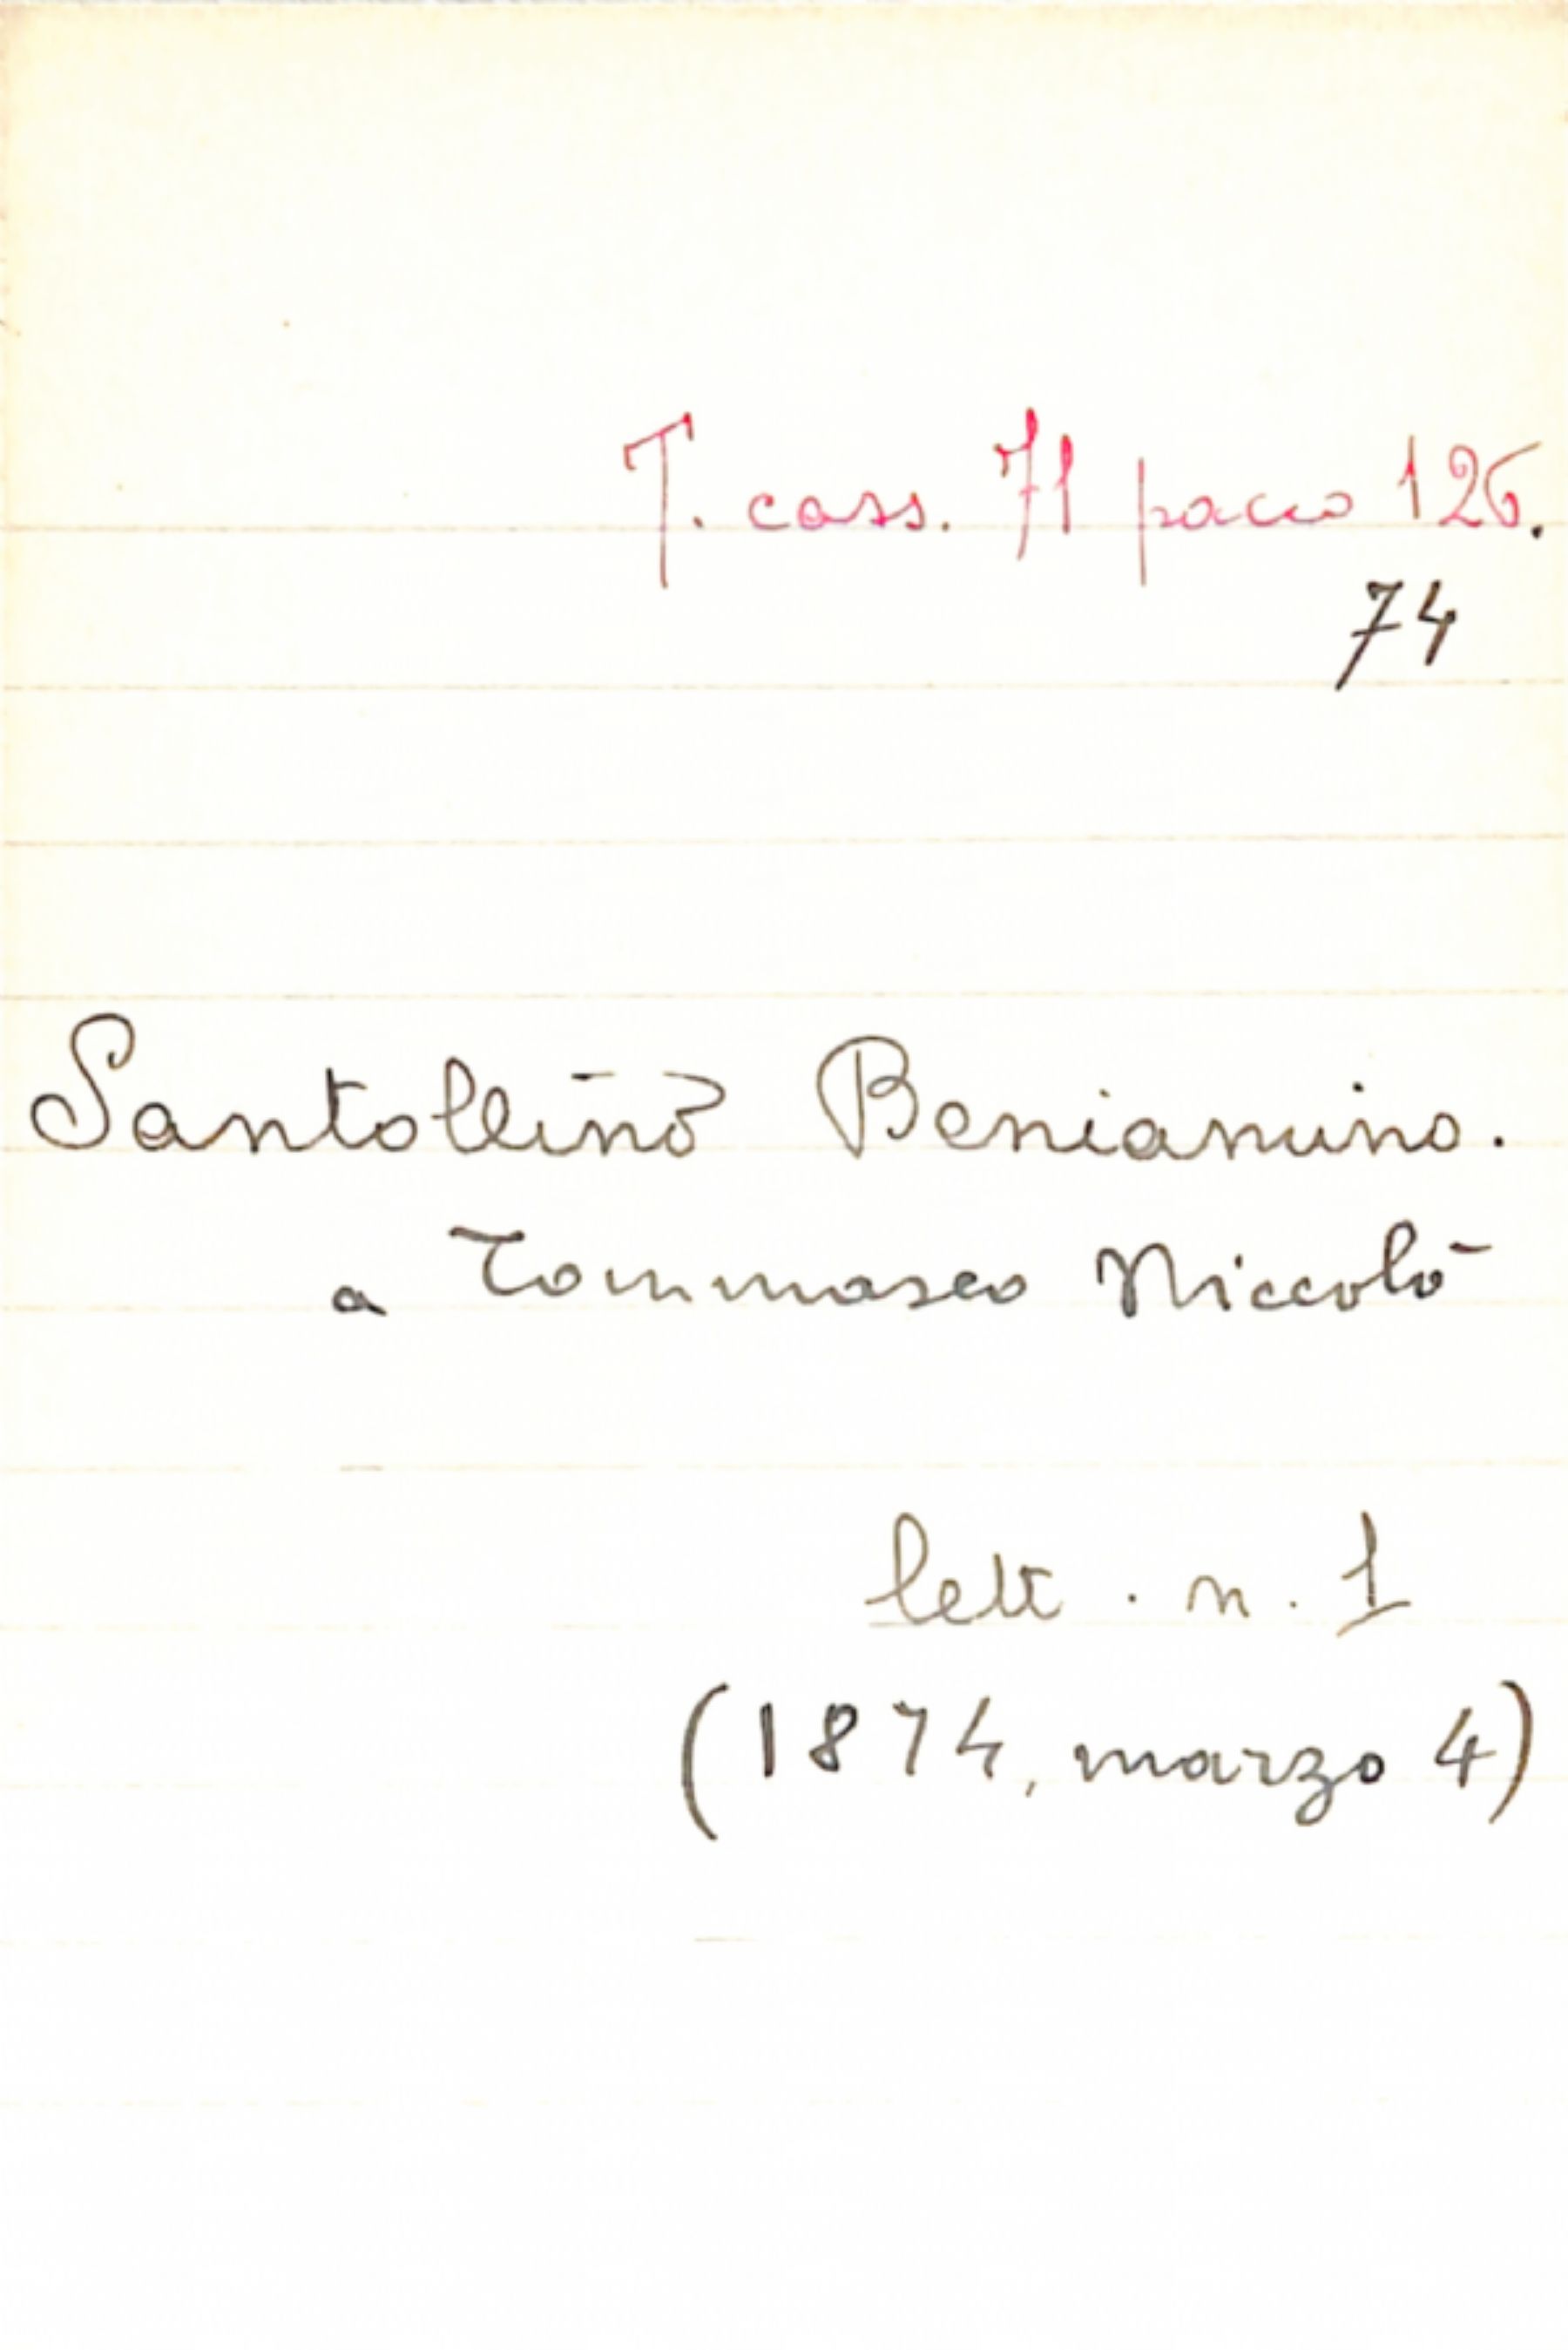 T. cass. 71 pacco 126.
74
Santollino Beniamino.
a Tommaseo Niccolò
lett. n. 1
(1874, marzo 4)